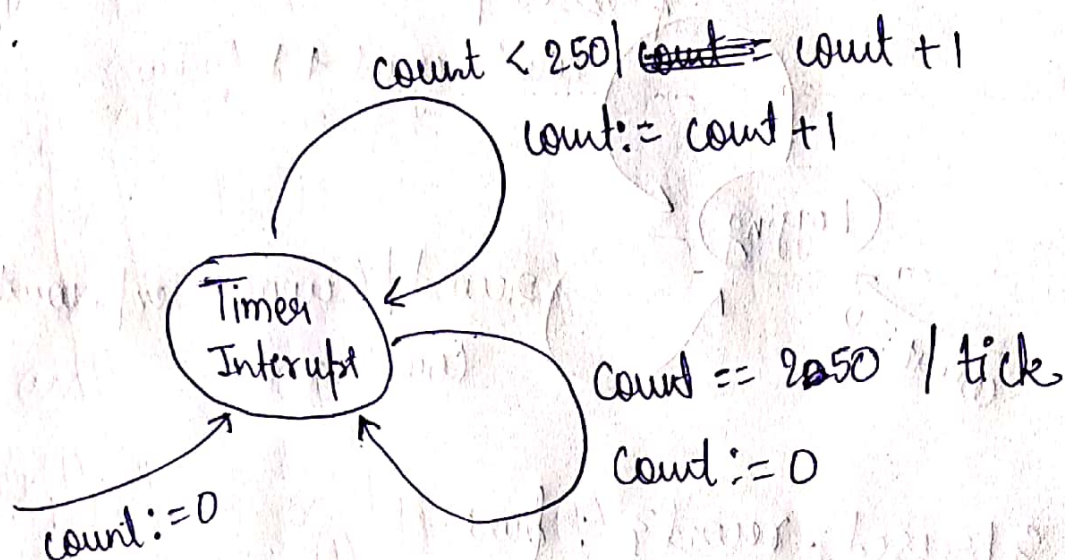 count < 250 / count = count + 1
count := count + 1
Timer
Interupt
count == 250 / tick
count := 0
count := 0